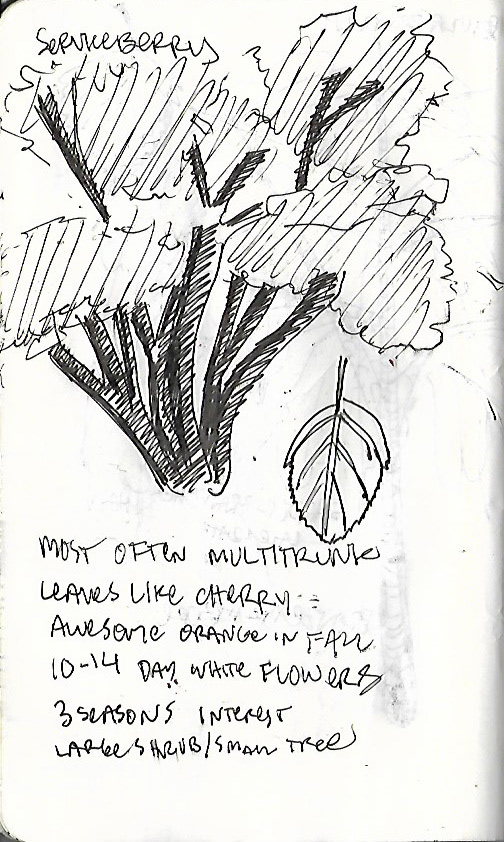 SERVICEBERRY
MOST OFTEN MULTITRUNK
LEAVES LIKE CHERRY -
AWESOME ORANGE IN FALL
10-14 DAY WHITE FLOWERS
3 SEASONS INTEREST
LARGE SHRUB/SMALL TREE